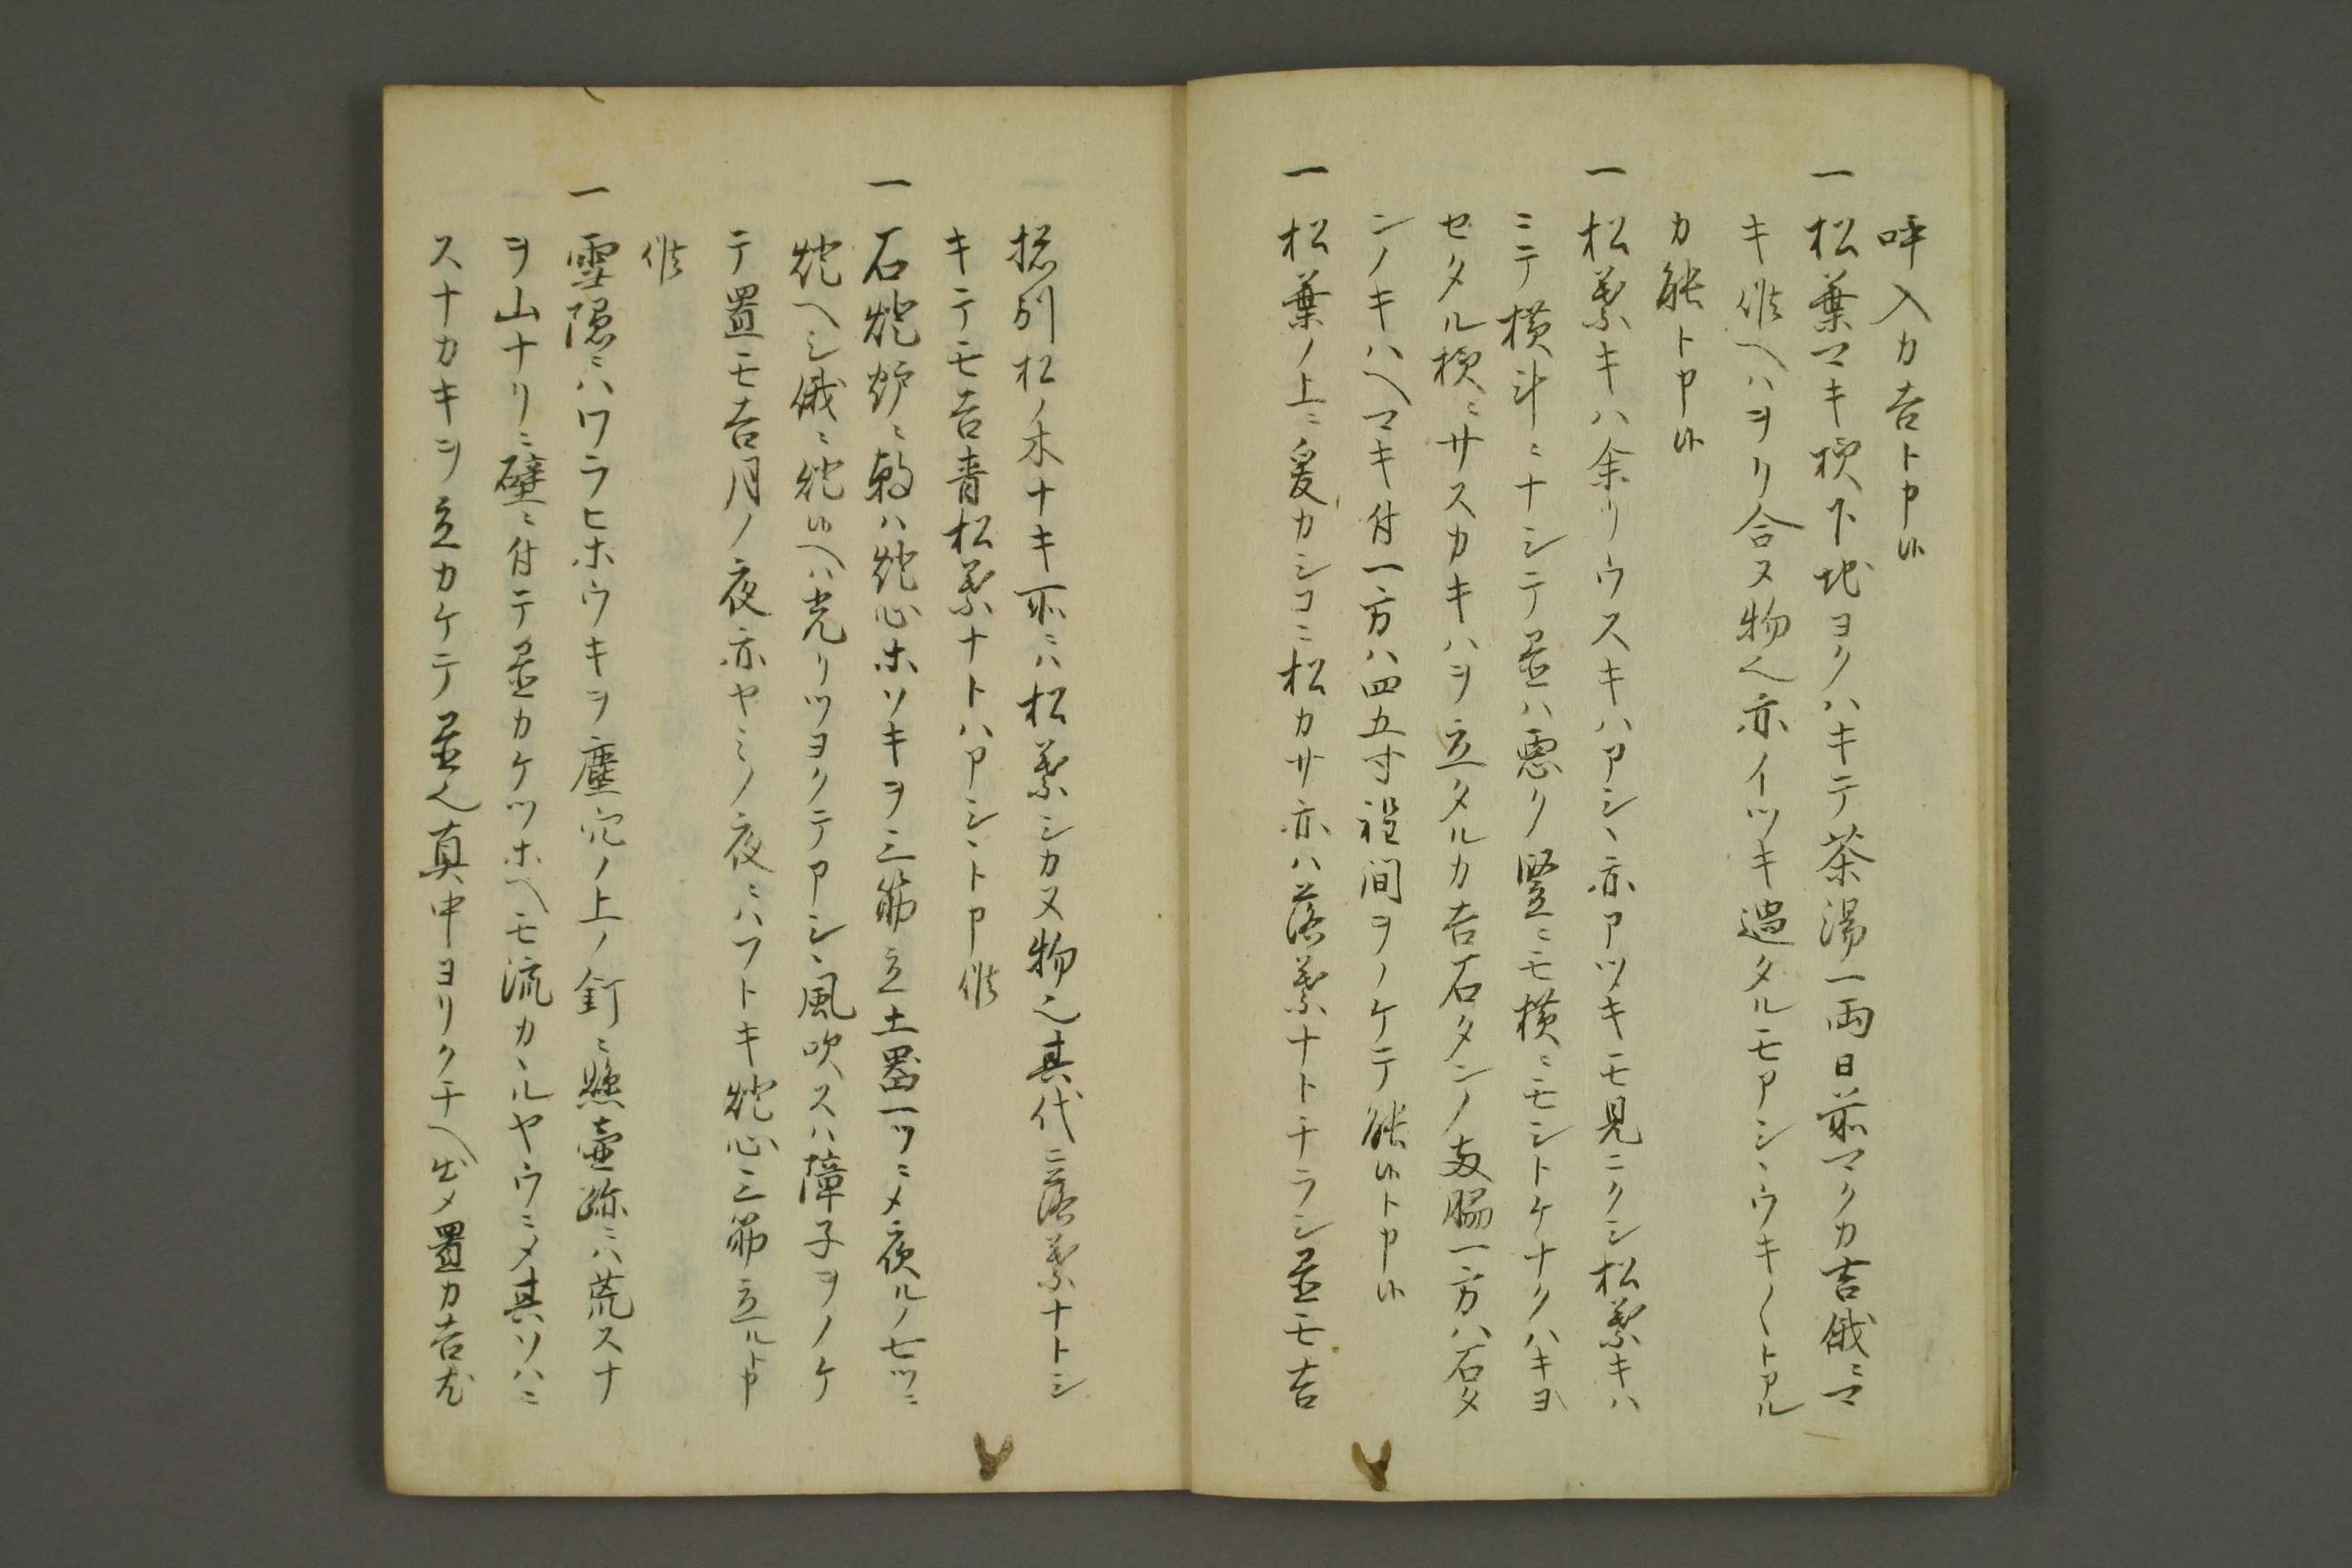 呼入カ吉ト申候
一 松葉マキ様下地ヨクハキテ茶湯一両日前マクカ吉俄ニマ
キ候ヘハヲリ合ヌ物也亦イツキ過タルモアシヽウキ〱トアル
カ能ト申候
一 松葉キハ余リウスキハアシヽ亦アツキモ見ニクシ松葉キハ
ニテ横斗ニナシテ並ハ悪ク竪ニモ横ニモシトケナクハキヨ
セタル様ニサスカキハヲ立タルカ吉石タンノ両脇一方ハ石タ
ンノキハヘマキ付一方ハ四五寸程間ヲノケテ能候ト申候
一 松葉ノ上ニ爰カシコニ松カサ亦ハ落葉ナトチラシ並モ吉
惣別松ノ木ナキ所ニハ松葉シカヌ物也其代ニ落葉ナトシ
キテモ吉青松葉ナトハアシヽト申候
一 石燈炉ニ敷ハ燈心ホソキヲ三筋立土器一ツニメ夜ルノ七ツニ
燈ヘシ俄ニ燈候ヘハ光リツヨクテアシヽ風吹スハ障子ヲノケ
テ置モ吉月ノ夜亦ヤミノ夜ニハフトキ燈心三筋立ルト申
候
一 雪隠ニハワラヒホウキヲ塵穴ノ上ノ釘ニ懸壷跡ニハ荒スナ
ヲ山ナリニ壁ニ付テ並カケツホヘモ流カヽルヤウニメ其ソハニ
スナカキヲ立カケテ並也真中ヨリクチヘ出メ置カ吉尤